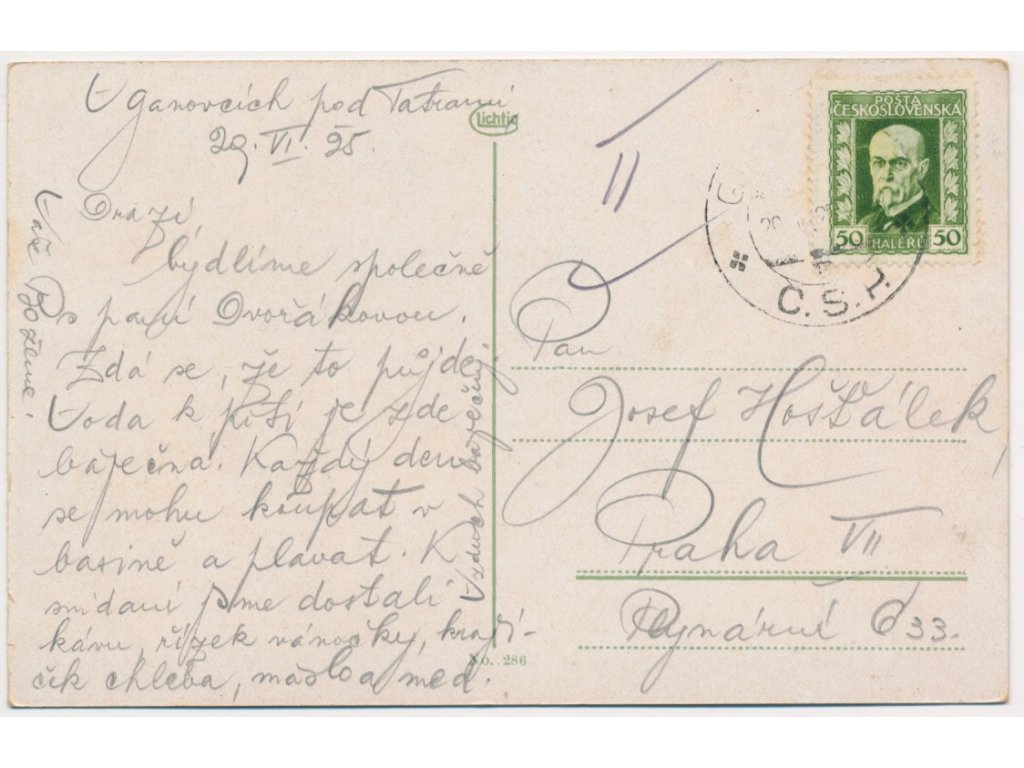 V Ganovcích pod Tatrami
29. VI. 25.
Drazí,
bydlíme společně
s paní Dvořákovou.
Zdá se, že to půjde,
Voda k pití je zde
báječná. Každý den
se mohu koupat v
basině a plavat. K
snídani jsme dostali
kávu, řízek vánočky, krají-
ček chleba, máslo a med.
Vzduch báječný.
Váš Božene.
Lichtig
No. 286
II
POŠTA
ČESKOSLOVENSKÁ
50 HALÉŘŮ 50
Č.S.P.
Pan
Josef Hošťálek,
Praha VII
Plynární 633.